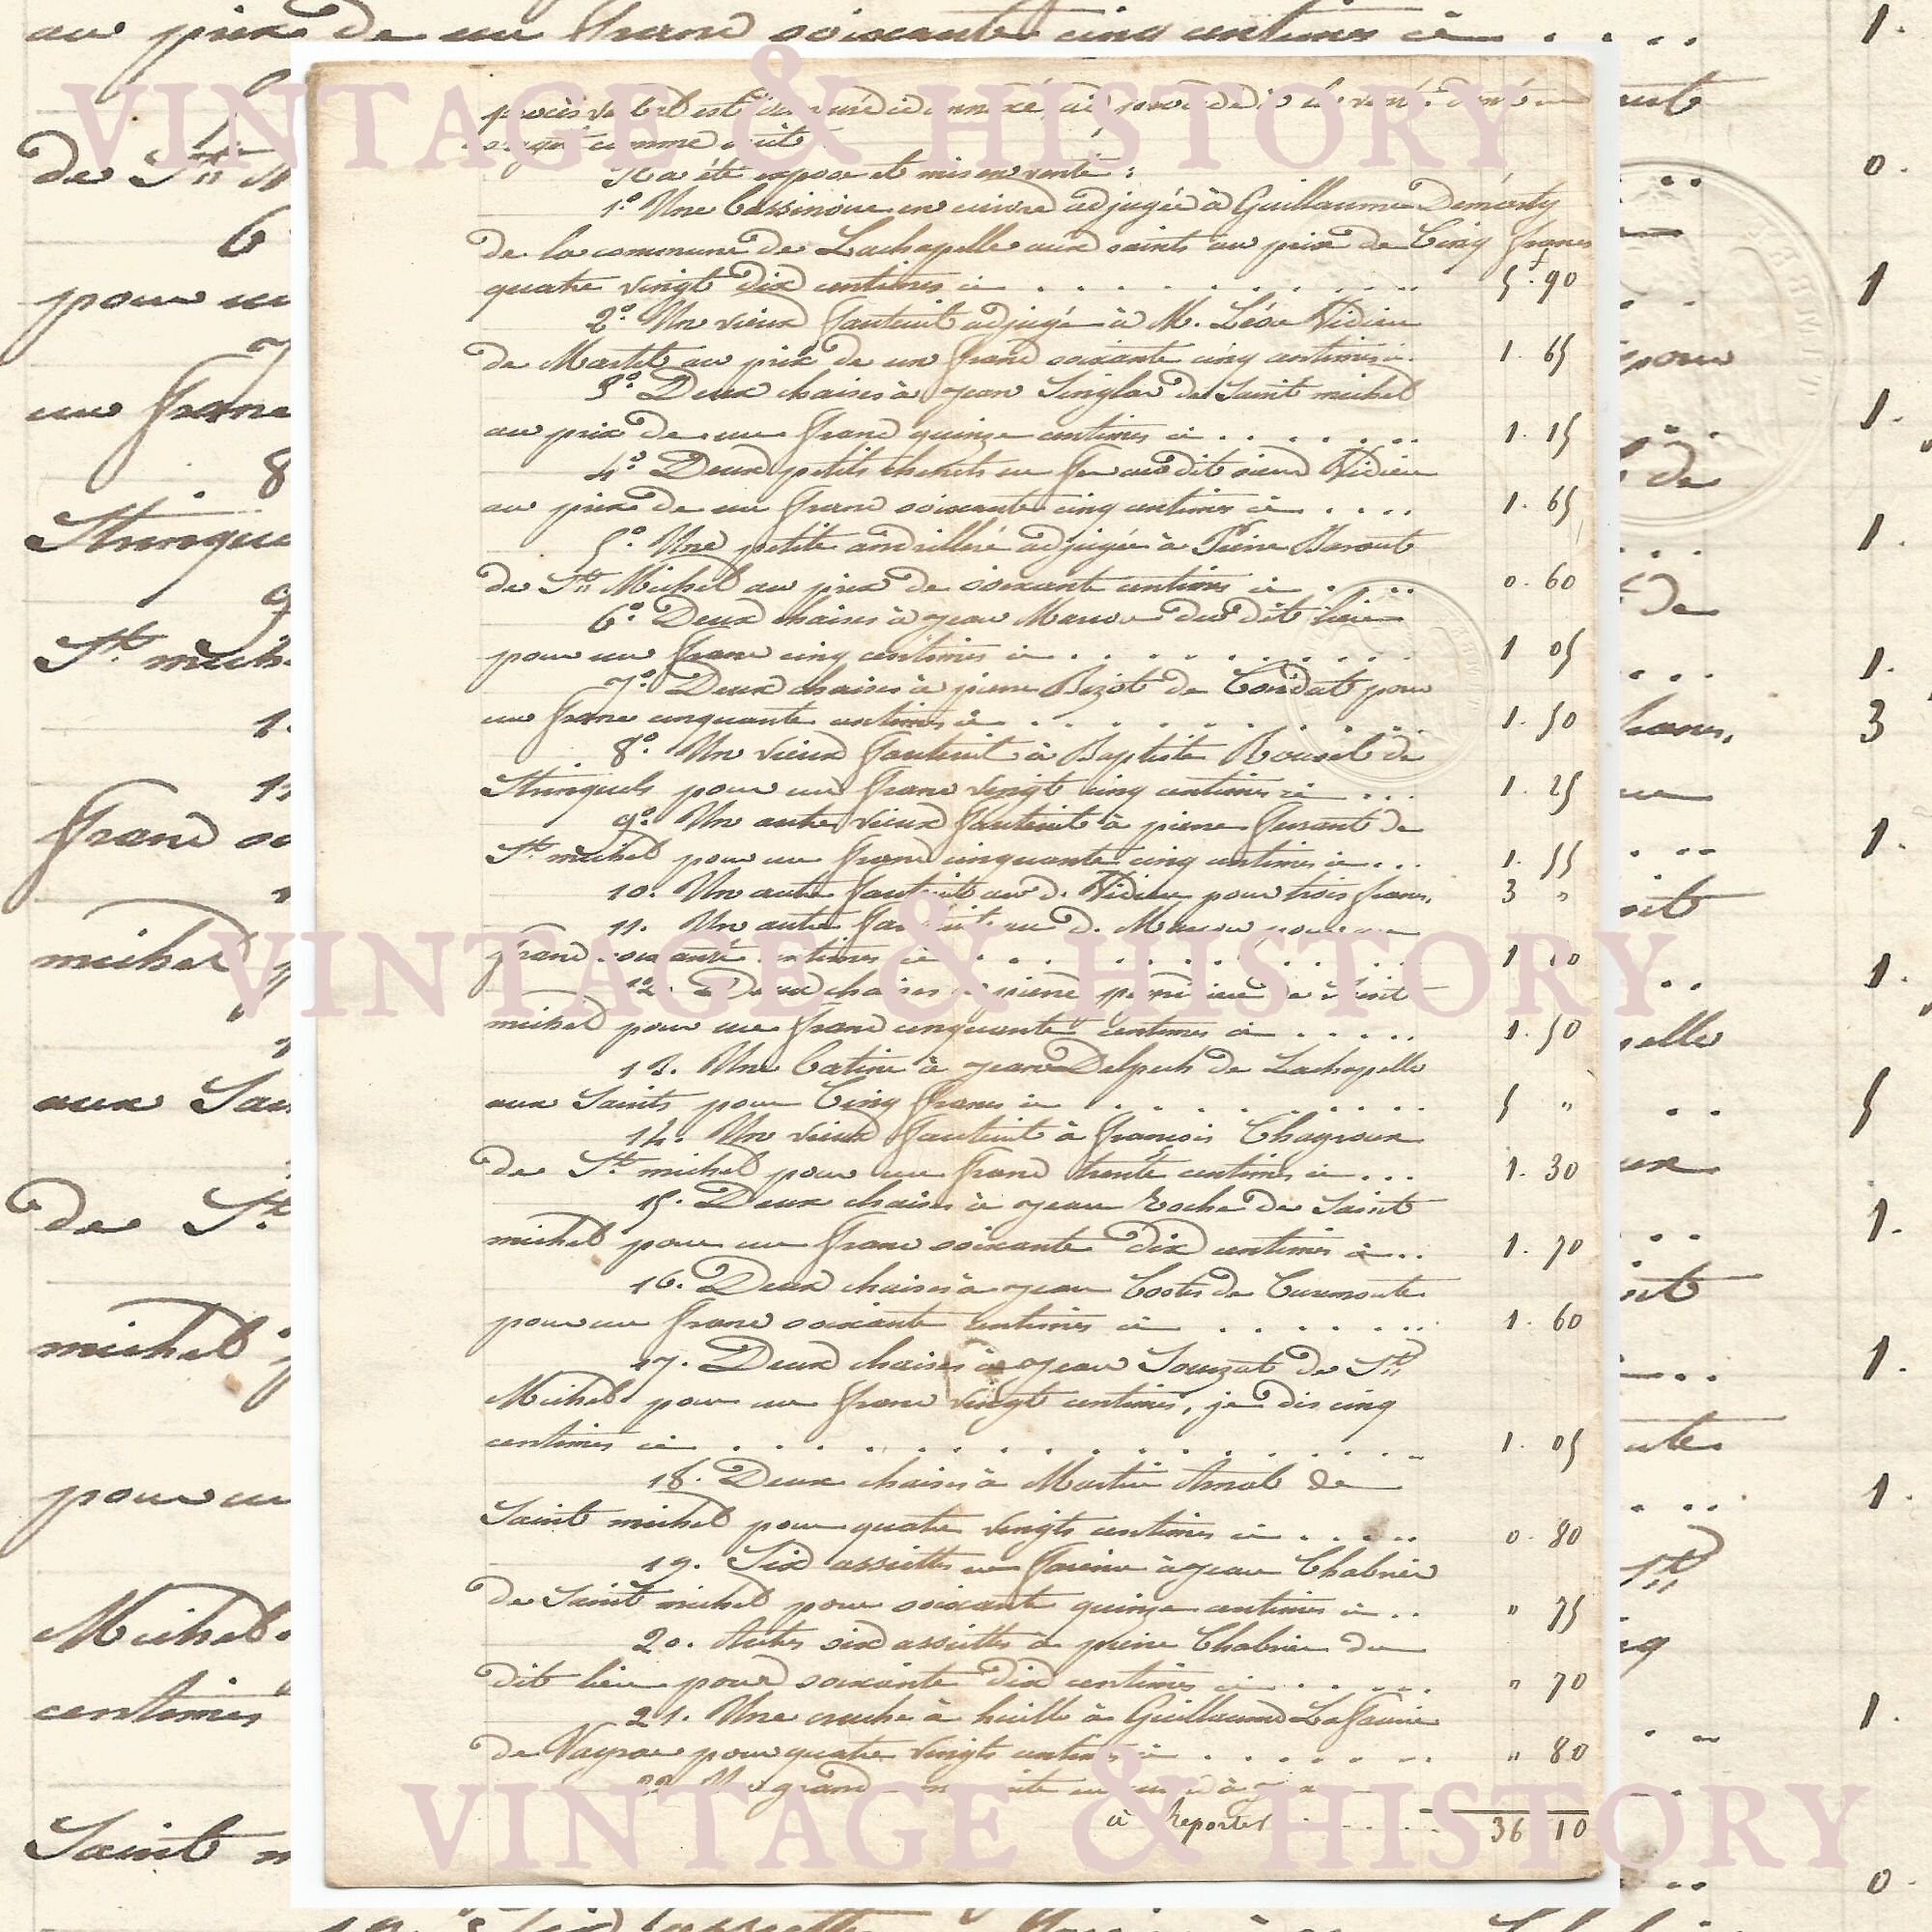 VINTAGE & HISTORY
procès verbal est annexé, ai procédé à la vente
comme suit
Il a été exposé et mis en vente :
1.° Une bassinoire en cuivre adjugée à Guillaume
de la commune de Lachapelle aux saints au prix de Cinq francs
quatre vingt dix centimes ci . . . . . . . . . . 5f.90
2.° Un vieux fauteuil adjugé à M. Léon Vidieu
de Martel au prix de un franc soixante cinq centimes ci. 1. 65
3.° Deux chaises à jean Singlar de Saint michel
au prix de un franc quinze centimes ci . . . . . . . 1. 15
4.° Deux petits chenets en fer audit sieur Vidieu
au prix de un franc soixante cinq centimes ci . . . . 1. 65
5.° Une petite adjugée à Pierre
de St. Michel au prix de soixante centimes ci . . . . 0. 60
6.° Deux chaises à jean du dit lieu
pour un franc cinq centimes ci . . . . . . . . . . 1 05
7.° Deux chaises à pierre Bizot de Condat pour
un franc cinquante centimes ci . . . . . . . . . . 1. 50
8.° Un vieux fauteuil à Baptiste de
Strenquels pour un franc vingt cinq centimes ci . . . 1. 25
9.° Un autre vieux fauteuil à pierre de
St. michel pour un franc cinquante cinq centimes ci . . . 1. 55
10. Un autre fauteuil au d. Vidieu pour trois francs. 3 "
11. Un autre fauteuil au d. pour un
franc soixante centimes ci . . . . . . . . . . 1 60
VINTAGE & HISTORY
12. Deux chaises à pierre de Saint
michel pour un franc cinquante centimes ci . . . . . 1. 50
13. Une Catine à jean Delpech de Lachapelle
aux Saints pour Cinq francs ci . . . . . . . . . . 5 "
14. Un vieux fauteuil à françois Chayroux
de St. michel pour un franc trente centimes ci . . . 1. 30
15. Deux chaises à jean Roche de Saint
michel pour un franc soixante dix centimes ci . . 1. 70
16. Deux chaises à jean Costes de Curemonte
pour un franc soixante centimes ci . . . . . . . 1. 60
17. Deux chaises à jean Souzat de St.
Michel pour un franc vingt centimes, je dis cinq
centimes ci . . . . . . . . . . . . . . . . . 1. 05
18. Deux chaises à Martin Arnal de
Saint michel pour quatre vingts centimes ci . . . . . 0. 80
19. Six assiettes en faience à jean Chabrier
de Saint michel pour soixante quinze centimes ci . . " 75
20. Autres six assiettes à pierre Chabrier du
dit lieu pour soixante dix centimes ci . . . . . " 70
21. Une cruche à huille à Guillaume Lafaurie
de Vayrac pour quatre vingts centimes ci . . . . . . . " 80
22. Une grande
à Reporter . . . . . . 36 10
VINTAGE & HISTORY